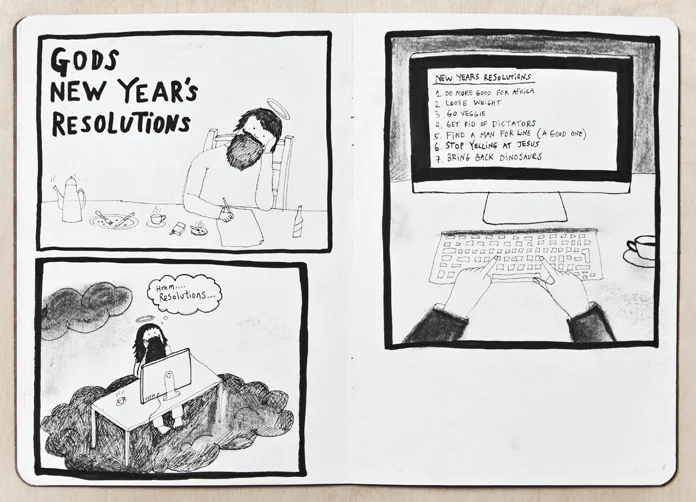 GODS
NEW YEAR'S
RESOLUTIONS
Hmm....
Resolutions....
NEW YEARS RESOLUTIONS
1. DO MORE GOOD FOR AFRICA
2. LOOSE WEIGHT
3. GO VEGGIE
4. GET RID OF DICTATORS
5. FIND A MAN FOR LINE (A GOOD ONE)
6. STOP YELLING AT JESUS
7. BRING BACK DINOSAURS